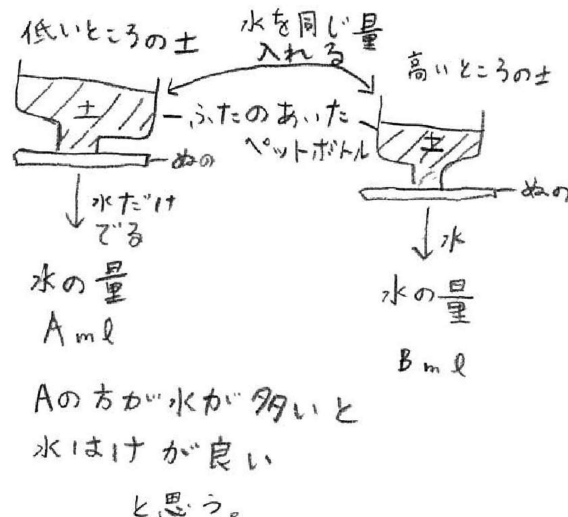 低いところの土
水を同じ量
入れる
高いところの土
土
ふたのあいた
ペットボトル
土
ぬの
ぬの
水だけ
でる
水
水の量
Aml
水の量
Bml
Aの方が水が多いと
水はけが良い
と思う。